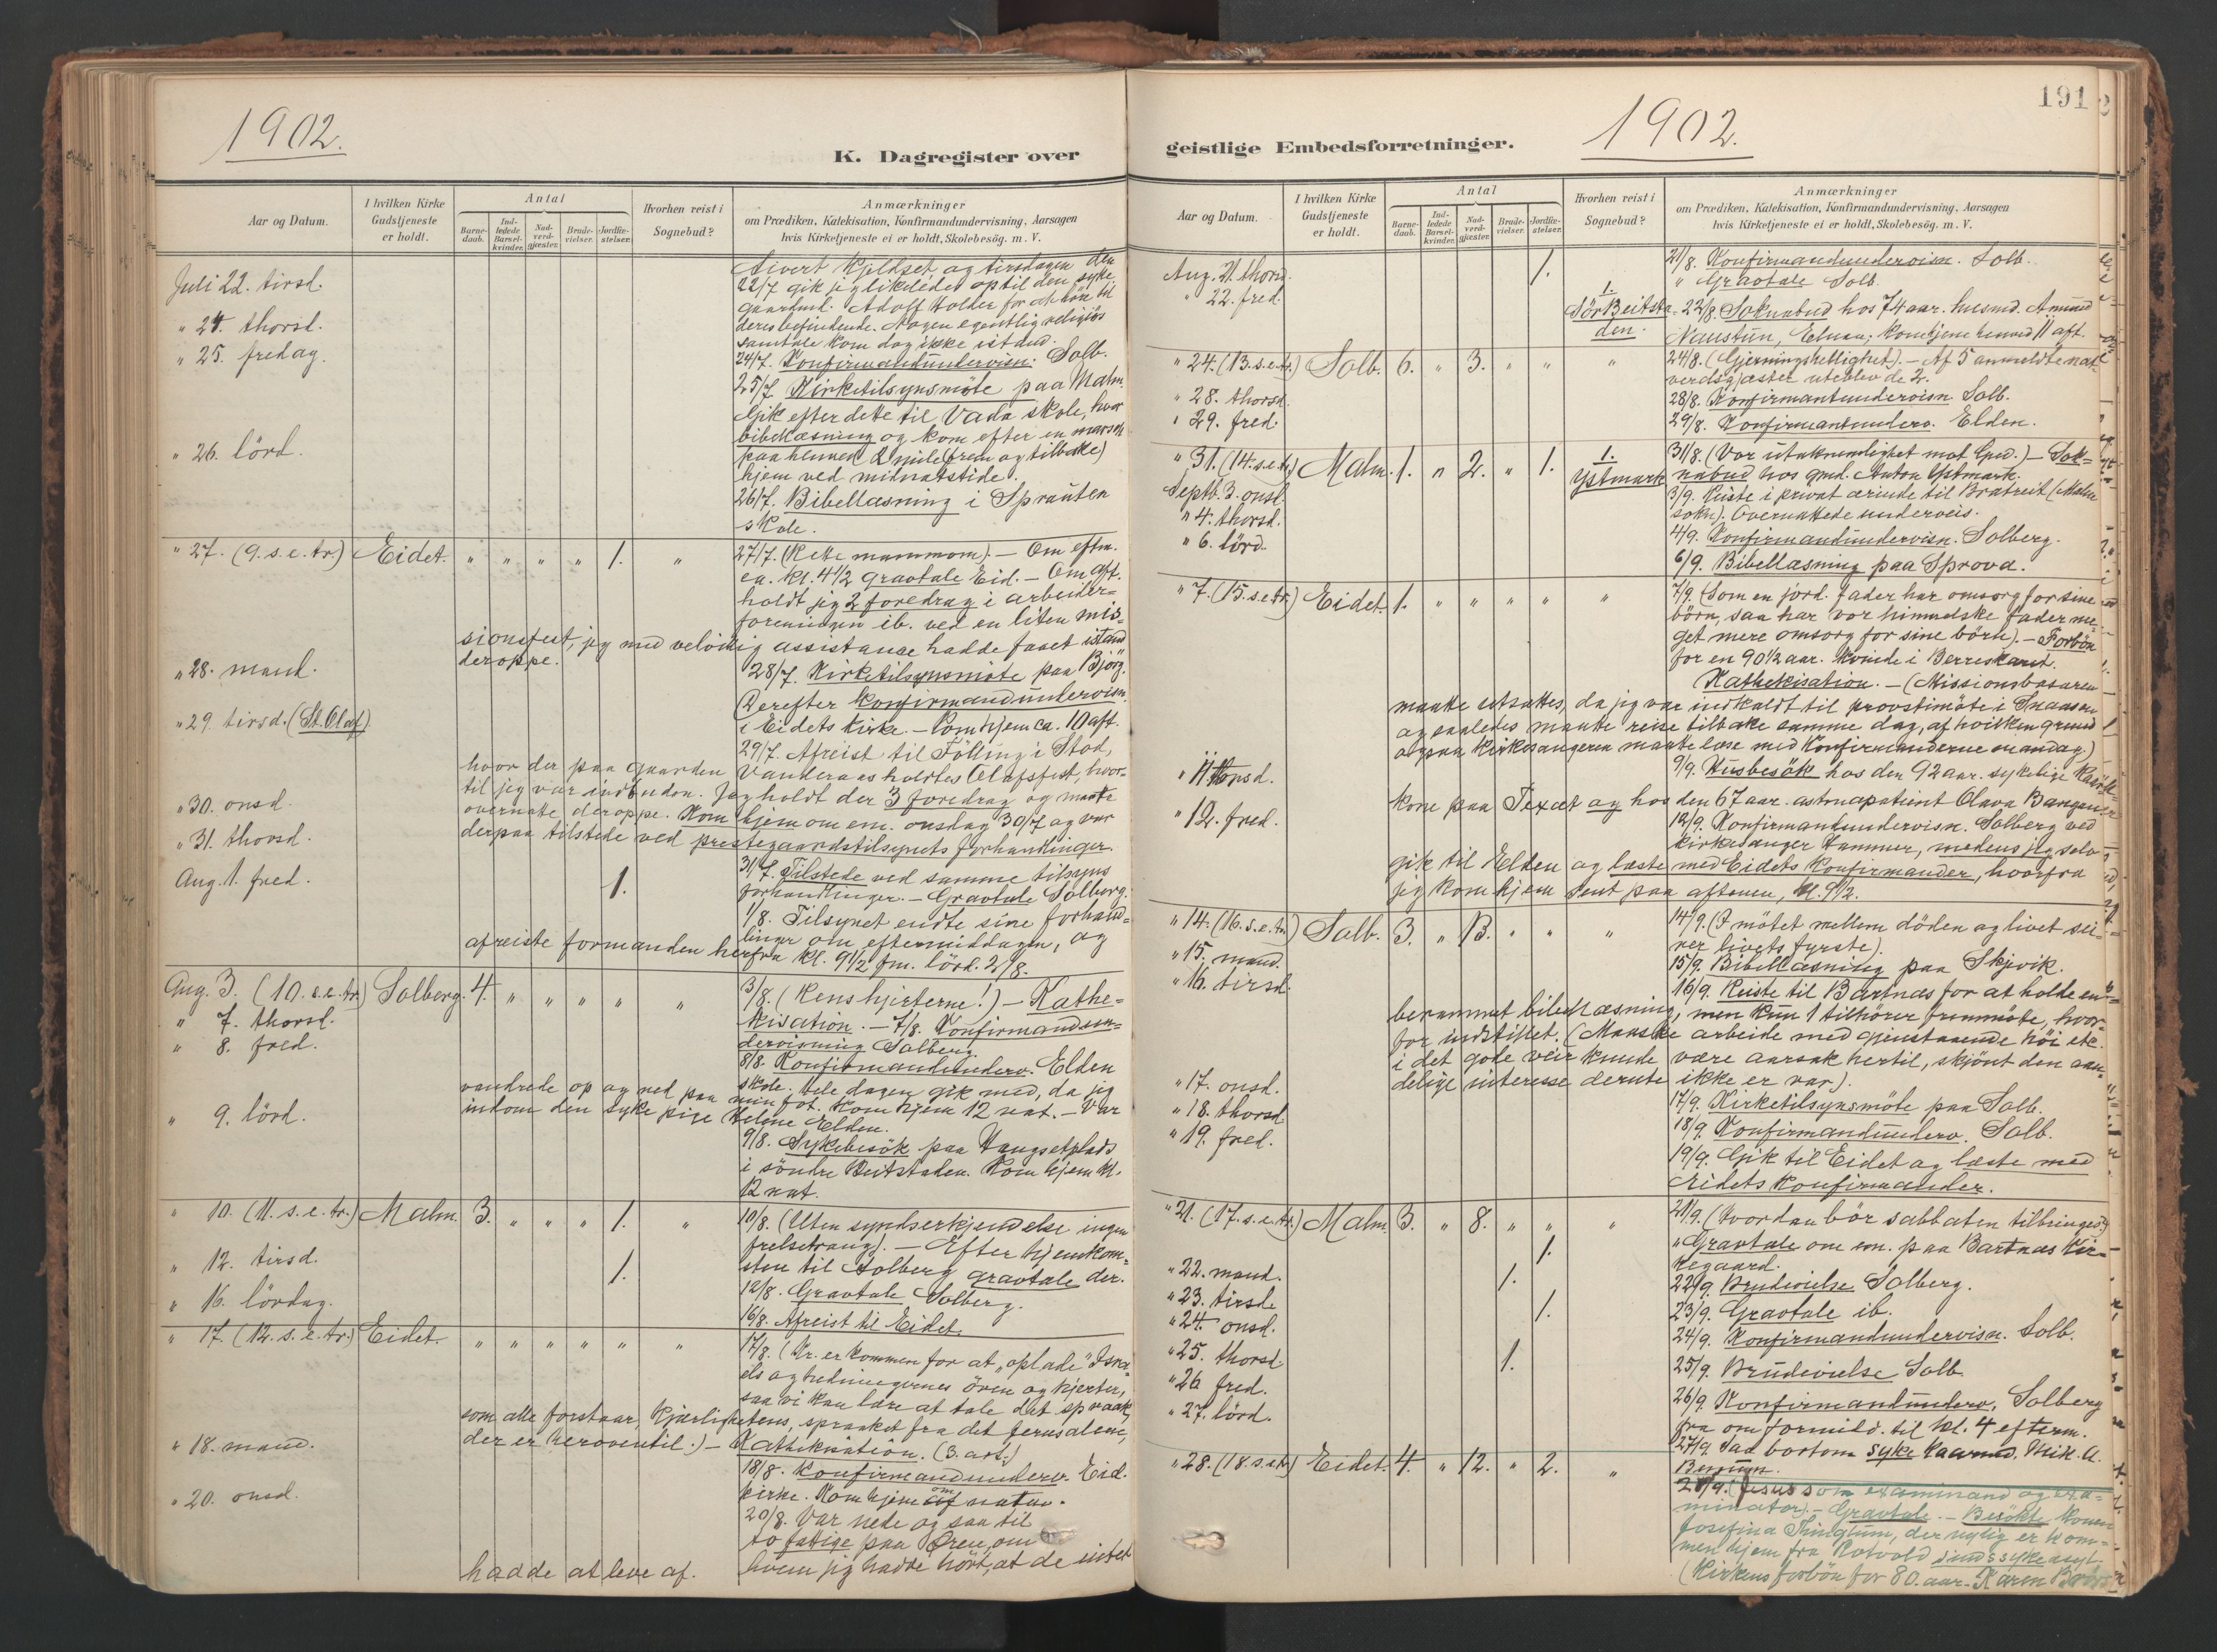 1902.
K. Dagregister over
Aar og Datum.
I hvilken Kirke
Gudstjeneste
er holdt.
Antal
Barne-
daab.
Ind-
ledede
Barsel-
kvinder.
Nad-
verd-
gjæster.
Brude-
vielser.
Jordfæ-
stelser.
Hvorhen reist i
Sognebud?
Anmærkninger
om Prædiken, Katekisation, Konfirmandundervisning, Aarsagen
hvis Kirketjeneste ei er holdt, Skolebesög. m. V.
Juli 22. tirsd.
Sivert Kjeldset, og tirsdagen den
22/7 gik jeg likeledes op til den syke
gaardmd. Adolf Holder for at höre til
deres befindende. Nogen egentlig religiös
samtale kom dog ikke istand.
" 24. thorsd.
24/7. Konfirmandundervisn. Solb.
" 25. fredag.
25/7 Kirketilsynsmöte paa Malm.
Gik efter dete til Vada skole, hvor
bibellæsning og kom efter en marsch
paa henved 2 mile (frem og tilbake)
hjem ved midnatstide.
" 26. lörd.
26/7. Bibellæsning i Sprauten
skole.
" 27. (9. s. e. tr.) Eidet. " " " " 1. "
27/7. (Rette mammom). — Om eftm.
ca. kl. 4 1/2 gravtale Eid. — Om aft.
holdt jeg 2 foredrag i arbeider-
foreningen ib. ved en liten mis-
sionsfest, jeg med velvillig assistance hadde faaet istand
deroppe.
" 28. mand.
28/7. Kirketilsynsmöte paa Björg.
Derefter konfirmandundervisn.
i Eidets kirke. — Kom hjem ca. 10 aft.
" 29. tirsd. (St. Olaf)
29/7. Afreist til Fölling i Stod,
hvor der paa gaarden Vanderaas holdtes Olafsfest, hvor-
til jeg var indbuden. Jeg holdt der 3 foredrag og maatte
overnatte deroppe. Kom hjem om em. onsdag 30/7 og var
derpaa tilstede ved prestegaardstilsynets forhandlinger.
" 30. onsd.
" 31. thorsd.
31/7. Tilstede ved samme tilsyns
forhandlinger. — Gravtale Solberg.
Aug. 1. fred. 1.
1/8. Tilsynet endte sine forhand-
linger om eftermiddagen, og
afreiste formanden herfra kl. 9 1/2 fm. lörd. 2/8.
Aug. 3. (10. s. e. tr.) Solberg. 4. " " " " "
3/8. (Rens hjerterne!) — Kathe-
kisation. — 7/8. Konfirmandun-
dervisning Solberg.
" 7. thorsd.
" 8. fred.
8/8. Konfirmandunderv. Elden
skole. Hele dagen gik med, da jeg
vandrede op og ned paa min fot. Kom hjem 12 nat. — Var
indom den syke pige Helene Elden.
" 9. lörd.
9/8. Sykebesök paa Haugsetplads
i söndre Beitstaden. Kom hjem kl.
12 nat.
" 10. (11. s. e. tr.) Malm. 3. " " " 1. "
10/8. (Uten syndserkjendelse ingen
frelsetrang). — Efter hjemkom-
sten til Solberg gravtale der.
" 12. tirsd. 1.
12/8. Gravtale Solberg.
" 16. lördag.
16/8. Afreist til Eidet.
" 17. (12. s. e. tr.) Eidet. " " " " " "
17/8. (Kr. er kommen for at „oplade" Isra-
els og hedningernes ören og hjerter,
saa vi kan lære at tale det spraak,
som alle forstaar, kjærlighetens, spraaket fra det Jerusalem,
der er heroventil.) — Kathekisation. (3. art.)
" 18. mand.
18/8. Konfirmandunderv. Eid.
kirke. Kom hjem om natten.
" 20. onsd.
20/8. Var nede og saa til
to fattige paa Ören, om
hvem jeg hadde hört, at de intet
hadde at leve af.
191
geistlige Embedsforretninger.
1902.
Aar og Datum.
I hvilken Kirke
Gudstjeneste
er holdt.
Antal
Barne-
daab.
Ind-
ledede
Barsel-
kvinder.
Nad-
verd-
gjæster.
Brude-
vielser.
Jordfæ-
stelser.
Hvorhen reist i
Sognebud?
Anmærkninger
om Prædiken, Katekisation, Konfirmandundervisning, Aarsagen
hvis Kirketjeneste ei er holdt, Skolebesög. m. V.
Aug. 21. thorsd. 1.
21/8. Konfirmandundervisn. Solb.
" Gravtale Solb.
" 22. fred. 1.
Sör Beitsta-
den.
22/8. Soknebud hos 74 aar. husmd. Amund
Naustun, Elnan; kom hjem henved 11 aft.
" 24. (13. s. e. tr.) Solb. 6. " 3. " " "
24/8. (Gjerningshellighet). — Af 5 anmeldte nat-
verdsgjæster uteblev de 2.
" 28. thorsd.
28/8. Konfirmantundervisn Solb.
" 29. fred.
29/8. Konfirmantunderv. Elden.
" 31. (14. s. e. tr.) Malm. 1. " 2. " 1. 1.
Ystmark
31/8. (Vor utaknemlighet mot Gud.) — Sok-
nebud hos gmd. Anton Ystmark.
Septb. 3. onsd.
3/9. Reiste i privat ærinde til Bratreit (Malm
sokn). Overnattede underveis.
" 4. thorsd.
4/9. Konfirmandundervisn. Solberg.
" 6. lörd.
6/9. Bibellæsning paa Sprova.
" 7. (15. s. e. tr.) Eidet. 1. " " " " "
7/9. (Som en jord. fader har omsorg for sine
börn, saa har vor himmelske fader me-
get mere omsorg for sine börn). — Forbön
for en 90 1/2 aar. kvinde i
Kathekisation. — (Missionsbasaren
maatte utsættes, da jeg var indkaldt til provstimöte i Snaasen
og saaledes maatte reise tilbake samme dag, af hvilken grund
ogsaa kirkesangeren maatte læse med konfirmanderne mandag.)
9/9. Husbesök hos den 92 aar. sykelige
kone paa og hos den 67 aar. astmapatient Olava
" 11. thorsd.
" 12. fred.
12/9. Konfirmandundervisn. Solberg ved
kirkesanger Hammer, medens jeg selv
gik til Elden og læste med Eidets konfirmander, hvorfra
jeg kom hjem sent paa aftenen, kl. 9 1/2.
" 14. (16. s. e. tr.) Solb. 3. " 13. " " "
14/9. (I mötet mellem döden og livet sei-
rer livets fyrste).
" 15. mand.
15/9. Bibellæsning paa Skjevik.
" 16. tirsd.
16/9. Reiste til Bartnæs for at holde en
berammet bibellæsning, men kun 1 tilhörer fremmöte, hvor-
for indstillet. (Maaske arbeide med gjenstaaende höi etc.
i det gode veir kunde være aarsak hertil, skjönt den aan-
delige interesse derute ikke er var).
" 17. onsd.
17/9. Kirketilsynsmöte paa Solb.
" 18. thorsd
18/9. Konfirmandunderv. Solb.
" 19. fred.
19/9. Gik til Eidet og læste med
Eidets konfirmander.
" 21. (17. s. e. tr.) Malm. 3. " 8. " " "
21/9. (Hvordan bör sabbaten tilbringes?)
1.
" Gravtale om em. paa Bartnæs kir-
kegaard.
" 22. mand. 1.
22/9. Brudevielse Solberg.
" 23. tirsd. 1.
23/9. Gravtale ib.
" 24. onsd.
24/9. Konfirmandundervisn. Solb.
" 25. thorsd 1.
25/9. Brudevielse Solb.
" 26 fred.
26/9. Konfirmandunderv. Solberg
fra om formidd. til kl. 4 efterm.
" 27. lörd.
27/9. Saa bortom syke Mik. A.
" 28. (18. s. e. tr.) Eidet. 4. " 12. " 2. "
28/9. (Jesus som examinand og exa-
minator). — Gravtale. — Besökte konen
Josefina Tinglum, der nylig er kom-
men hjem fra Rotvold sindssykeasyl.
(Kirkens forbön for 80. aar. Karen